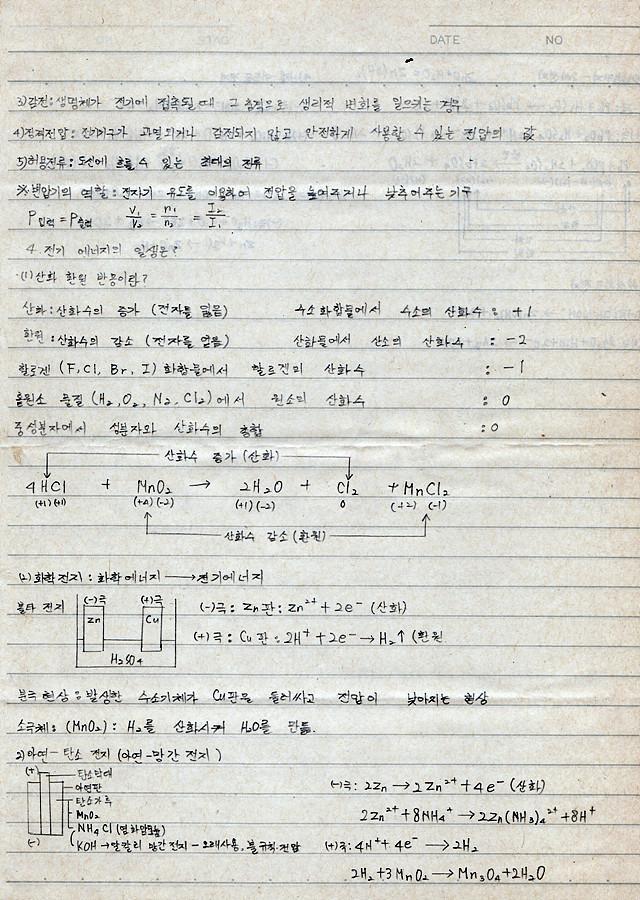 DATE NO
3)감전:생명체가 전기에 접촉될 때 그 충격으로 생리적 변화를 일으키는 경우
4)정격전압: 전기기구가 과열되거나 감전되지 않고 안전하게 사용할 수 있는 전압의 값
5)허용전류: 도선에 흐를 수 있는 최대의 전류
※변압기의 역할: 전자기 유도를 이용하여 전압을 높여주거나 낮추어주는 기구
P입력=P출력 V₁/V₂ = n₁/n₂ = I₂/I₁
4. 전기 에너지의 일생은?
(1)산화 환원 반응이란?
산화:산화수의 증가 (전자를 잃음) 수소화합물에서 수소의 산화수 : +1
환원:산화수의 감소 (전자를 얻음) 산화물에서 산소의 산화수 : -2
할로겐 (F, Cl, Br, I) 화합물에서 할로겐의 산화수 : -1
홑원소 물질 (H₂, O₂, N₂, Cl₂)에서 원소의 산화수 : 0
중성분자에서 성분자와 산화수의 총합 : 0
산화수 증가 (산화)
4HCl + MnO₂ → 2H₂O + Cl₂ + MnCl₂
(+1)(-1) (+4)(-2) (+1)(-2) 0 (+2) (-1)
산화수 감소 (환원)
(2)화학전지: 화학에너지 → 전기에너지
볼타 전지 (-)극 (+)극
Zn Cu
H₂SO₄
(-)극: Zn판: Zn²⁺+2e⁻ (산화)
(+)극: Cu판: 2H⁺+2e⁻→H₂↑ (환원
분극현상: 발생한 수소기체가 Cu판을 둘러싸고 전압이 낮아지는 현상
소극제: (MnO₂): H₂를 산화시켜 H₂O를 만듦.
2)아연-탄소 전지 (아연-망간 전지)
(+)
탄소막대
아연판
탄소가루
MnO₂
NH₄Cl (염화암모늄)
KOH →알칼리 망간 전지 - 오래사용, 불규칙.전압
(-)
(-)극: 2Zn → 2Zn²⁺+4e⁻ (산화)
2Zn²⁺+8NH₄⁺ → 2Zn(NH₃)₄²⁺+8H⁺
(+)극: 4H⁺+4e⁻ → 2H₂
2H₂+3MnO₂ → Mn₃O₄+2H₂O